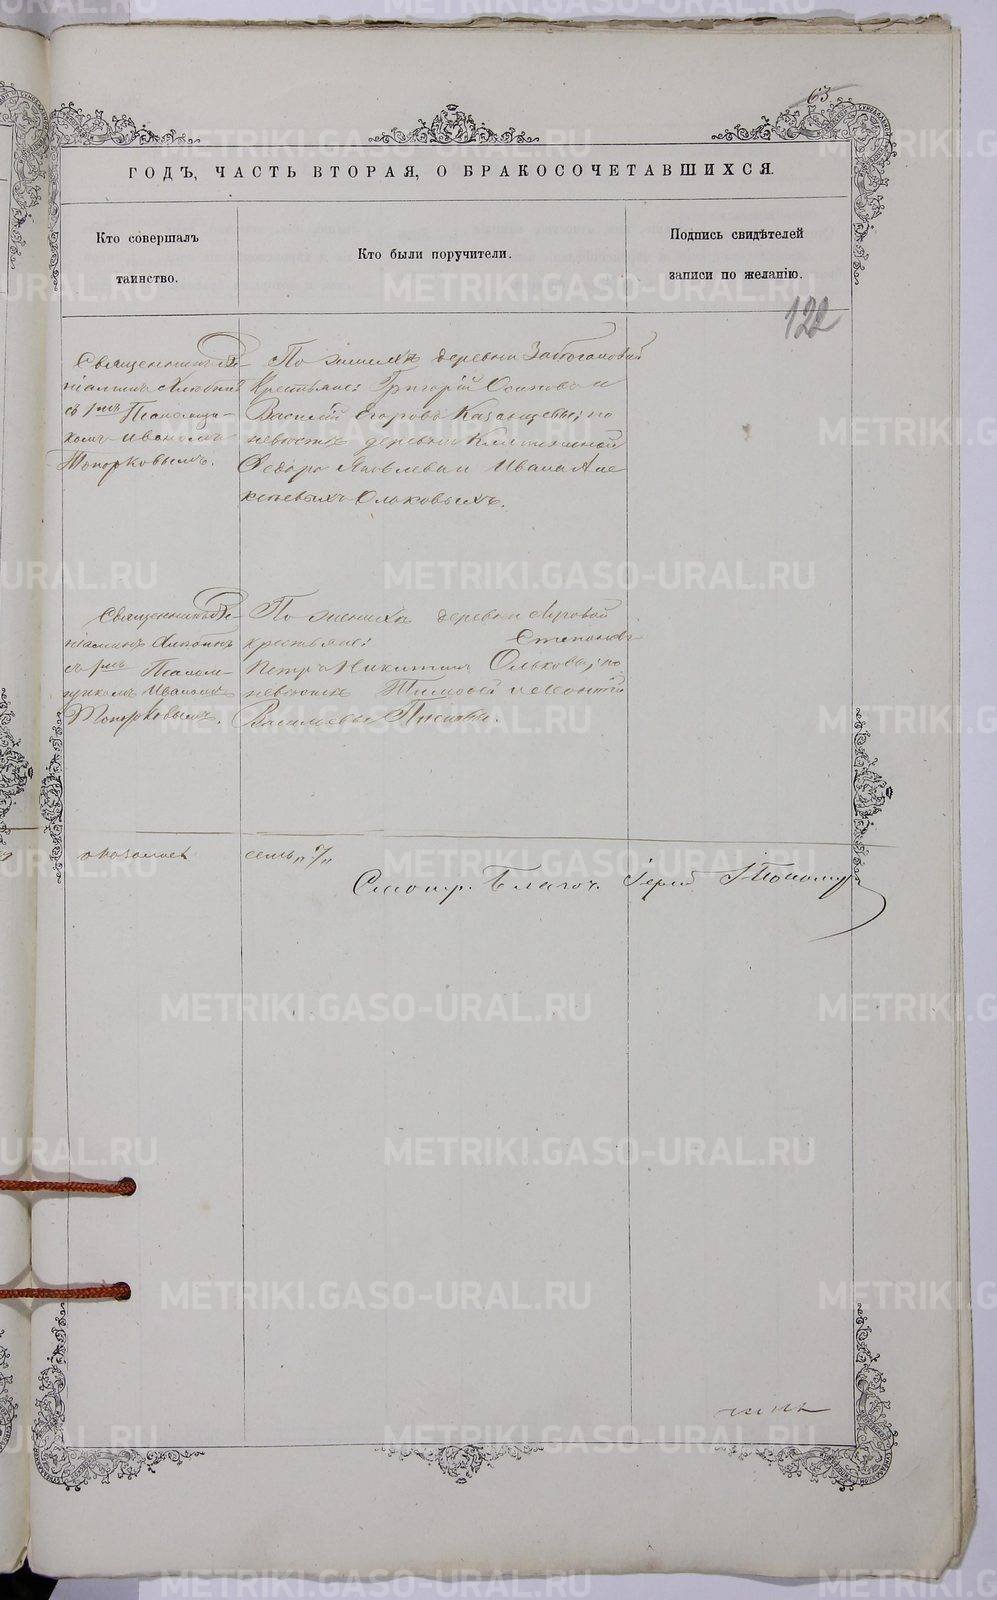 63
ГОДЪ, ЧАСТЬ ВТОРАЯ, О БРАКОСОЧЕТАВШИХСЯ.
Кто совершалъ
таинство.
Кто были поручители.
Подпись свидѣтелей
записи по желанію.
122
Священникъ Ве-
ніаминъ
съ Псаломщи-
комъ Иваномъ
Топорковымъ.
По женихѣ деревни
Крестьяне: Григорій Осиповъ и
Василій Егоровъ Казанцевы; по
невѣстѣ деревни
Ѳедоръ Яковлевъ и Иванъ Але
ксѣевыхъ Ольковыхъ.
Священникъ Ве-
ніаминъ
съ Псалом-
щикомъ Иваномъ
Топорковымъ.
По женихѣ деревни
крестьяне: Степановъ
Петръ Никитинъ Ольковы; по
невѣстѣ Тимофей и Леонтій
Васильевы
оказалось семь „7„
Смотр. Благоч. Іерей І.
METRIKI.GASO-URAL.RU